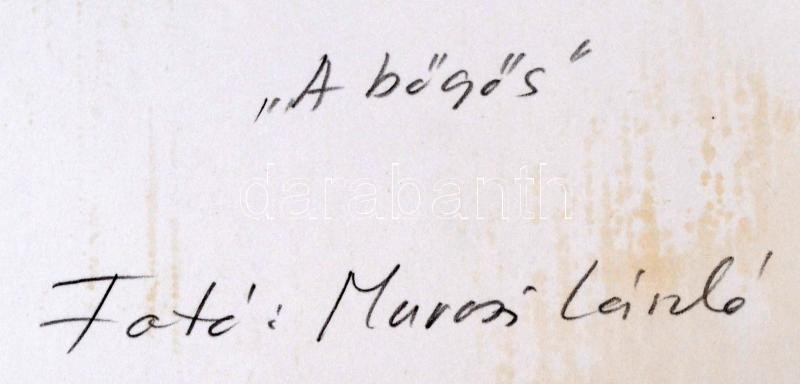 „A bőgős”
darabanth
Fotó: Murosi László